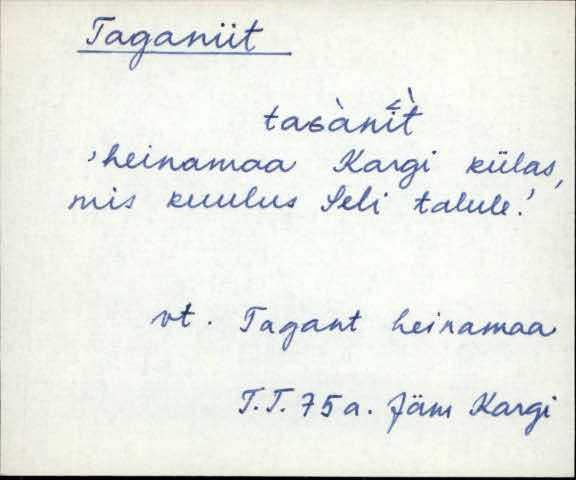 Taganiit
taɢànì<t
'heinamaa Kargi külas,
mis kuulus Seli talule.'
vt. Tagant heinamaa
T.T. 75 a. Jäm Kargi